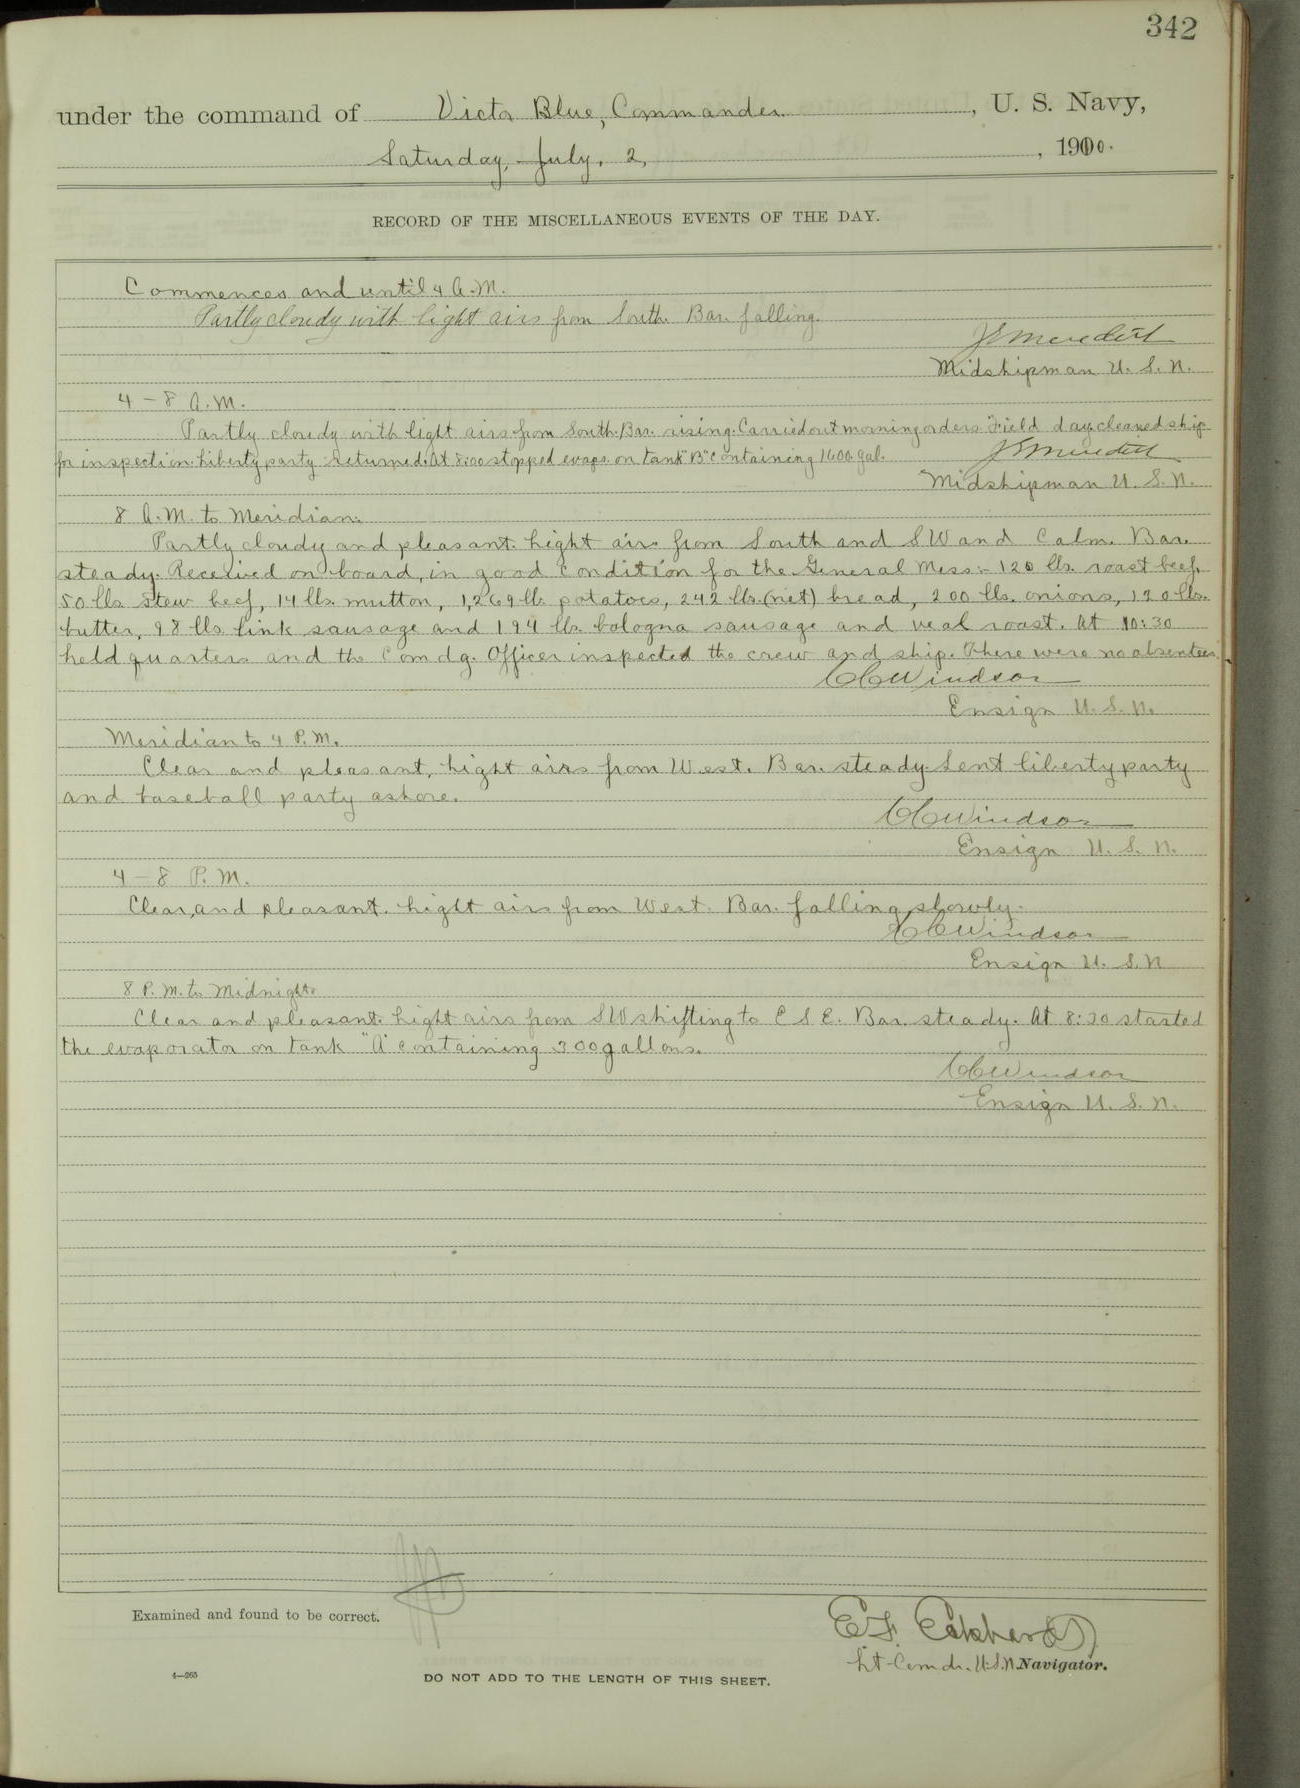 342
under the command of Victor Blue, Commander. , U. S. Navy,
Saturday, July, 2, , 1910.
RECORD OF THE MISCELLANEOUS EVENTS OF THE DAY.
Commences and until 4 A.M.
Partly cloudy with light airs from South. Bar. falling.
Meredith
Midshipman U. S. N.
4 - 8 A.M.
Partly cloudy with light airs from South. Bar. rising. Carried out morning orders. Field day, cleaned ship
for inspection. Liberty party returned. At 8:00 stopped evaps. on tank "B" containing 1600 gal.
Meredith
Midshipman U. S. N.
8 A.M. to Meridian.
Partly cloudy and pleasant. Light airs from South and SW and Calm. Bar.
steady. Received on board, in good condition for the General Mess:- 120 lbs. roast beef,
50 lbs. stew beef, 14 lbs. mutton, 1,269 lbs. potatoes, 242 lbs. (net) bread, 200 lbs. onions, 120 lbs.
butter, 98 lbs. link sausage and 194 lbs. bologna sausage and veal roast. At 10:30
held quarters and the Comdg. Officer inspected the crew and ship. There were no absentees.
CCWindsor
Ensign U. S. N.
Meridian to 4 P.M.
Clear and pleasant, Light airs from West. Bar. steady. Sent liberty party
and baseball party ashore.
CCWindsor
Ensign U. S. N.
4 - 8 P. M.
Clear, and pleasant. Light airs from West. Bar. falling slowly.
CCWindsor
Ensign U. S. N
8 P. M. to Midnight.
Clear and pleasant. Light airs from SW shifting to E S E. Bar. steady. At 8:30 started
the evaporator on tank "A" containing 300 gallons.
CCWindsor
Ensign U. S. N.
Examined and found to be correct.
E.F. Eckhardt
Lt-Comdr. U.S.N. Navigator.
4—265
DO NOT ADD TO THE LENGTH OF THIS SHEET.